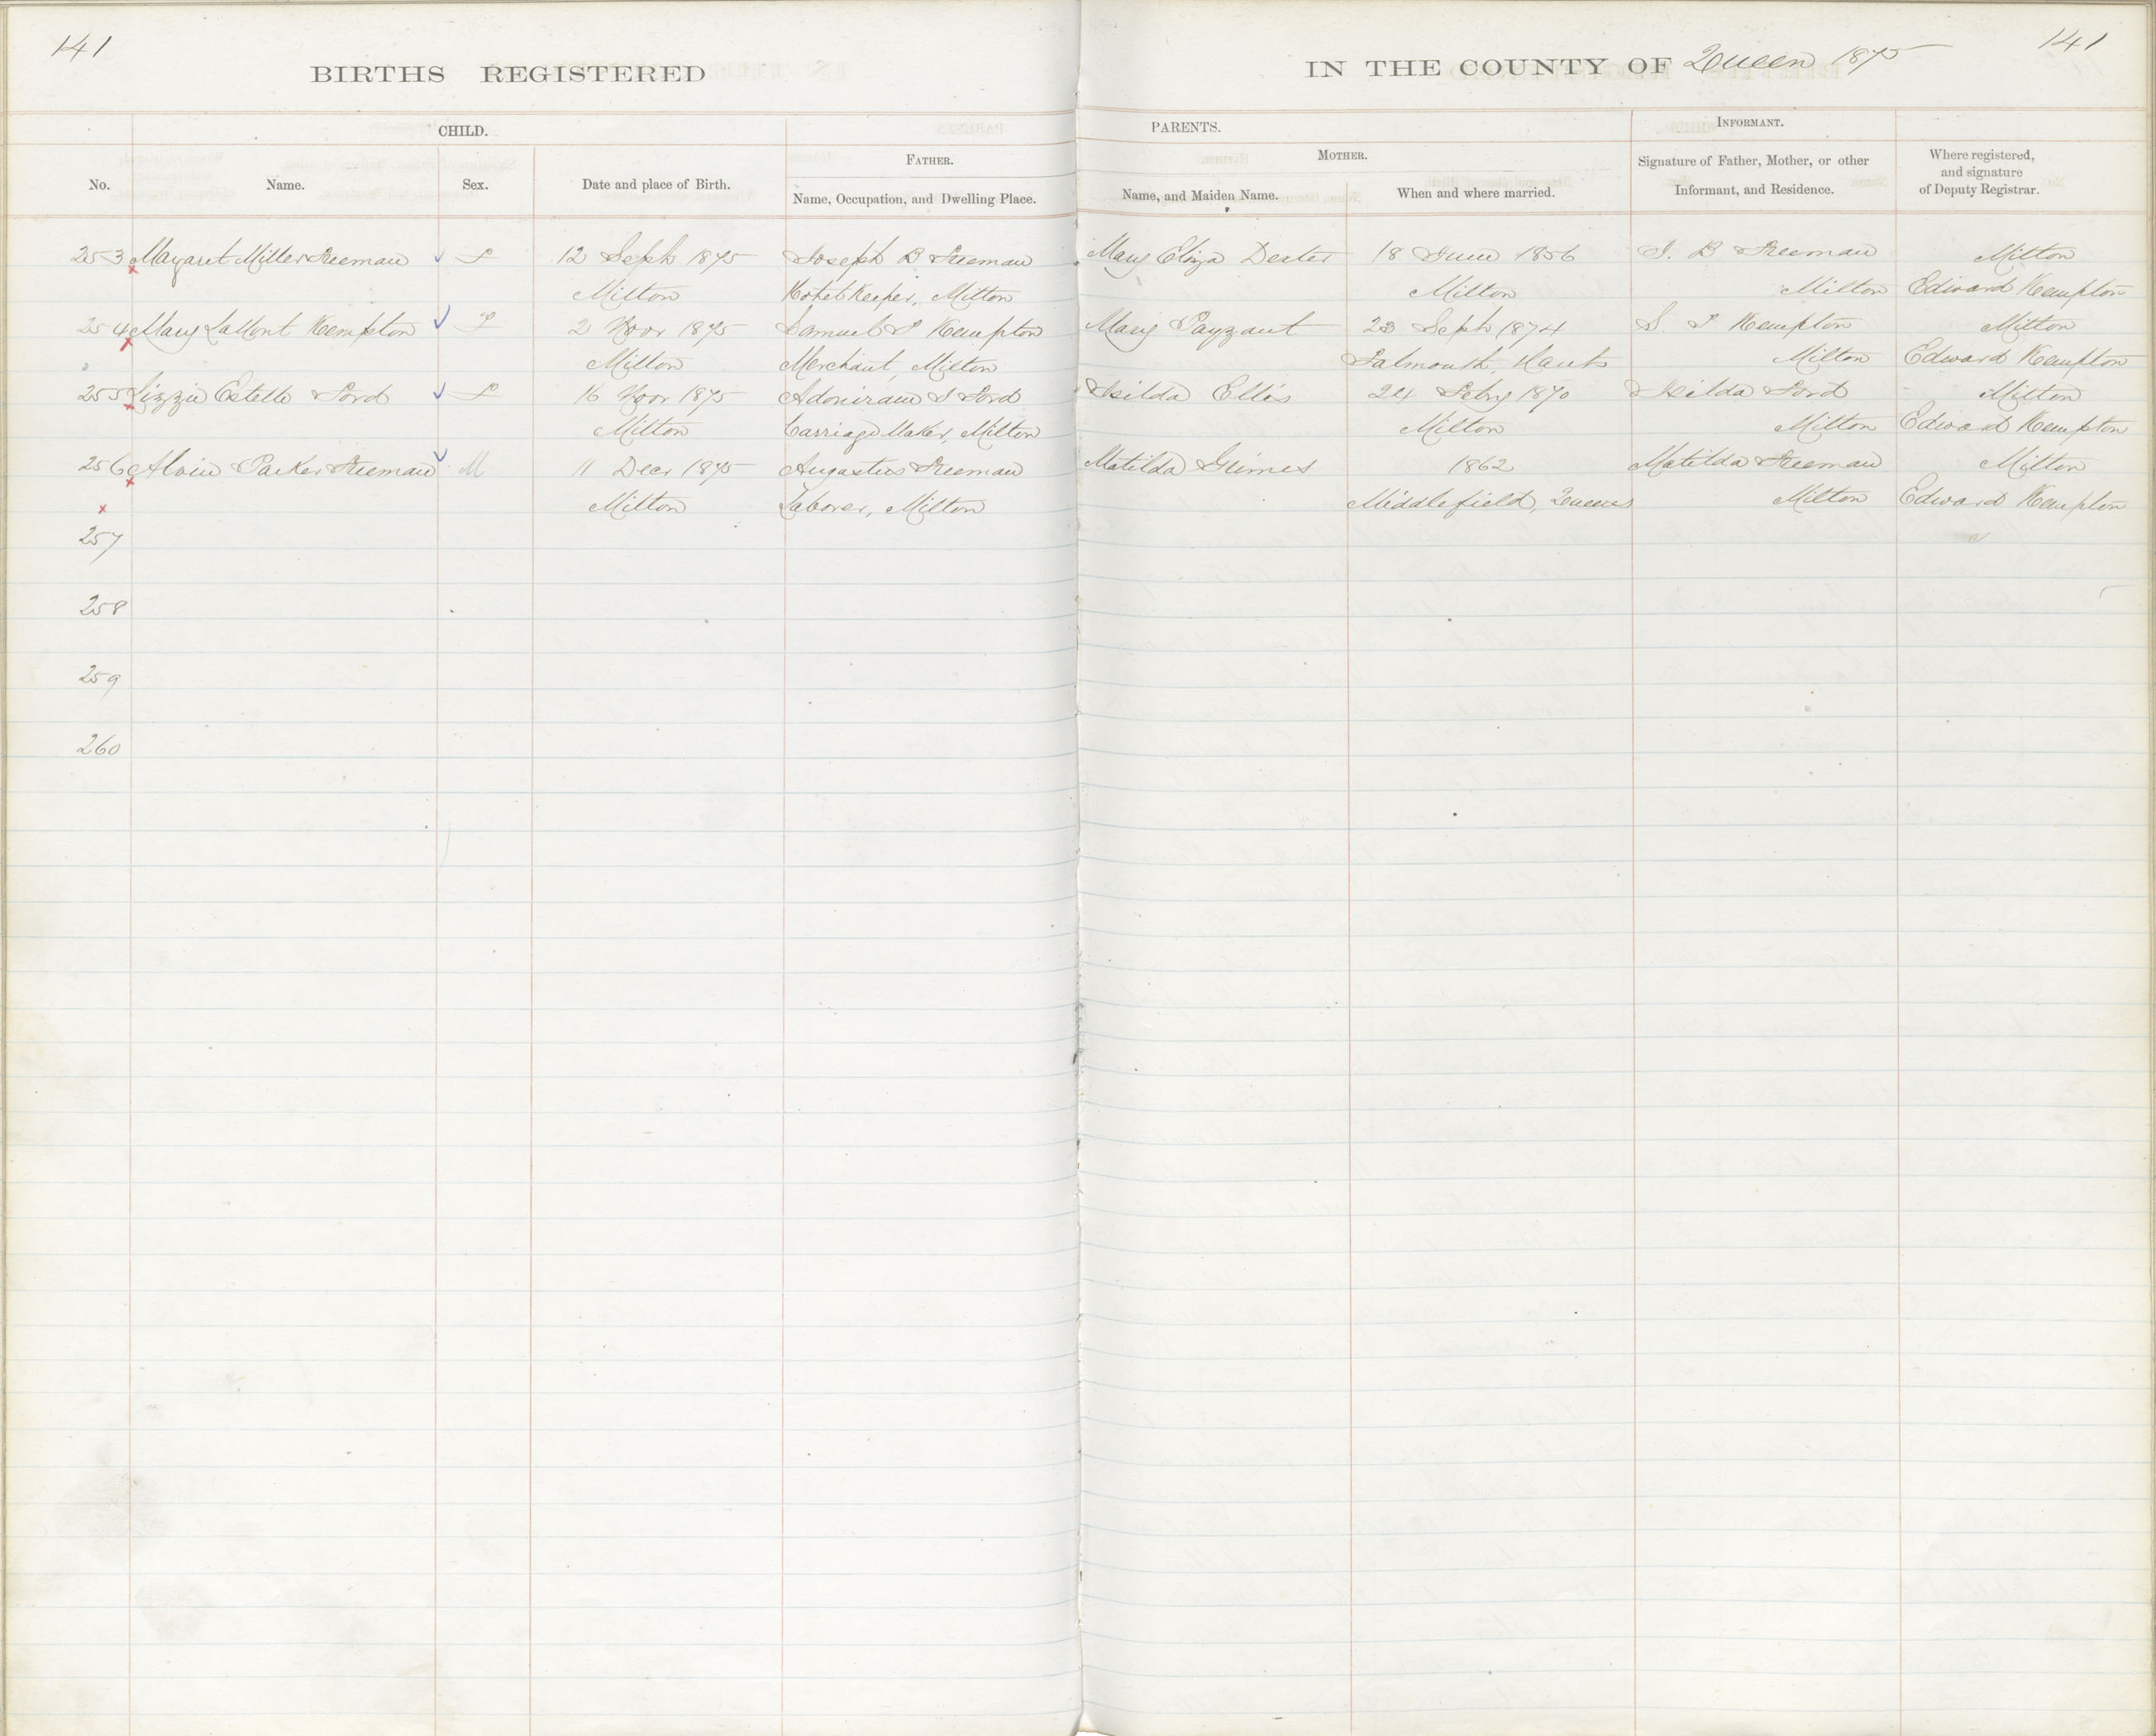 141
141
BIRTHS REGISTERED
IN THE COUNTY OF Queen 1875
CHILD.
PARENTS.
INFORMANT.
FATHER.
MOTHER.
No.
Name.
Sex.
Date and place of Birth.
Name, Occupation, and Dwelling Place.
Name, and Maiden Name.
When and where married.
Signature of Father, Mother, or other
Informant, and Residence.
Where registered,
and signature
of Deputy Registrar.
253 Margaret Miller Freeman F 12 Sept 1875 Joseph B Freeman Mary Eliza Dexter 18 June 1856 J. B Freeman Milton
Milton Hotel Keeper, Milton Milton Milton Edward Kempton
254 Mary LaMont Kempton F 2 Novr 1875 Samuel P Kempton Mary Payzant 23 Sept 1874 Milton
Milton Merchant, Milton Falmouth, Hants Milton Edward Kempton
255 Lizzie Estelle Ford F 16 Novr 1875 Adoniram J Ford Ellis 24 Feby 1870 Ford Milton
Milton Carriage Maker, Milton Milton Milton Edward Kempton
256 Alvin Parker Freeman M 11 Decr 1875 Augastus Freeman Matilda Grimes 1862 Matilda Freeman Milton
Milton Laborer, Milton Middlefield, Queens Milton Edward Kempton
257
258
259
260